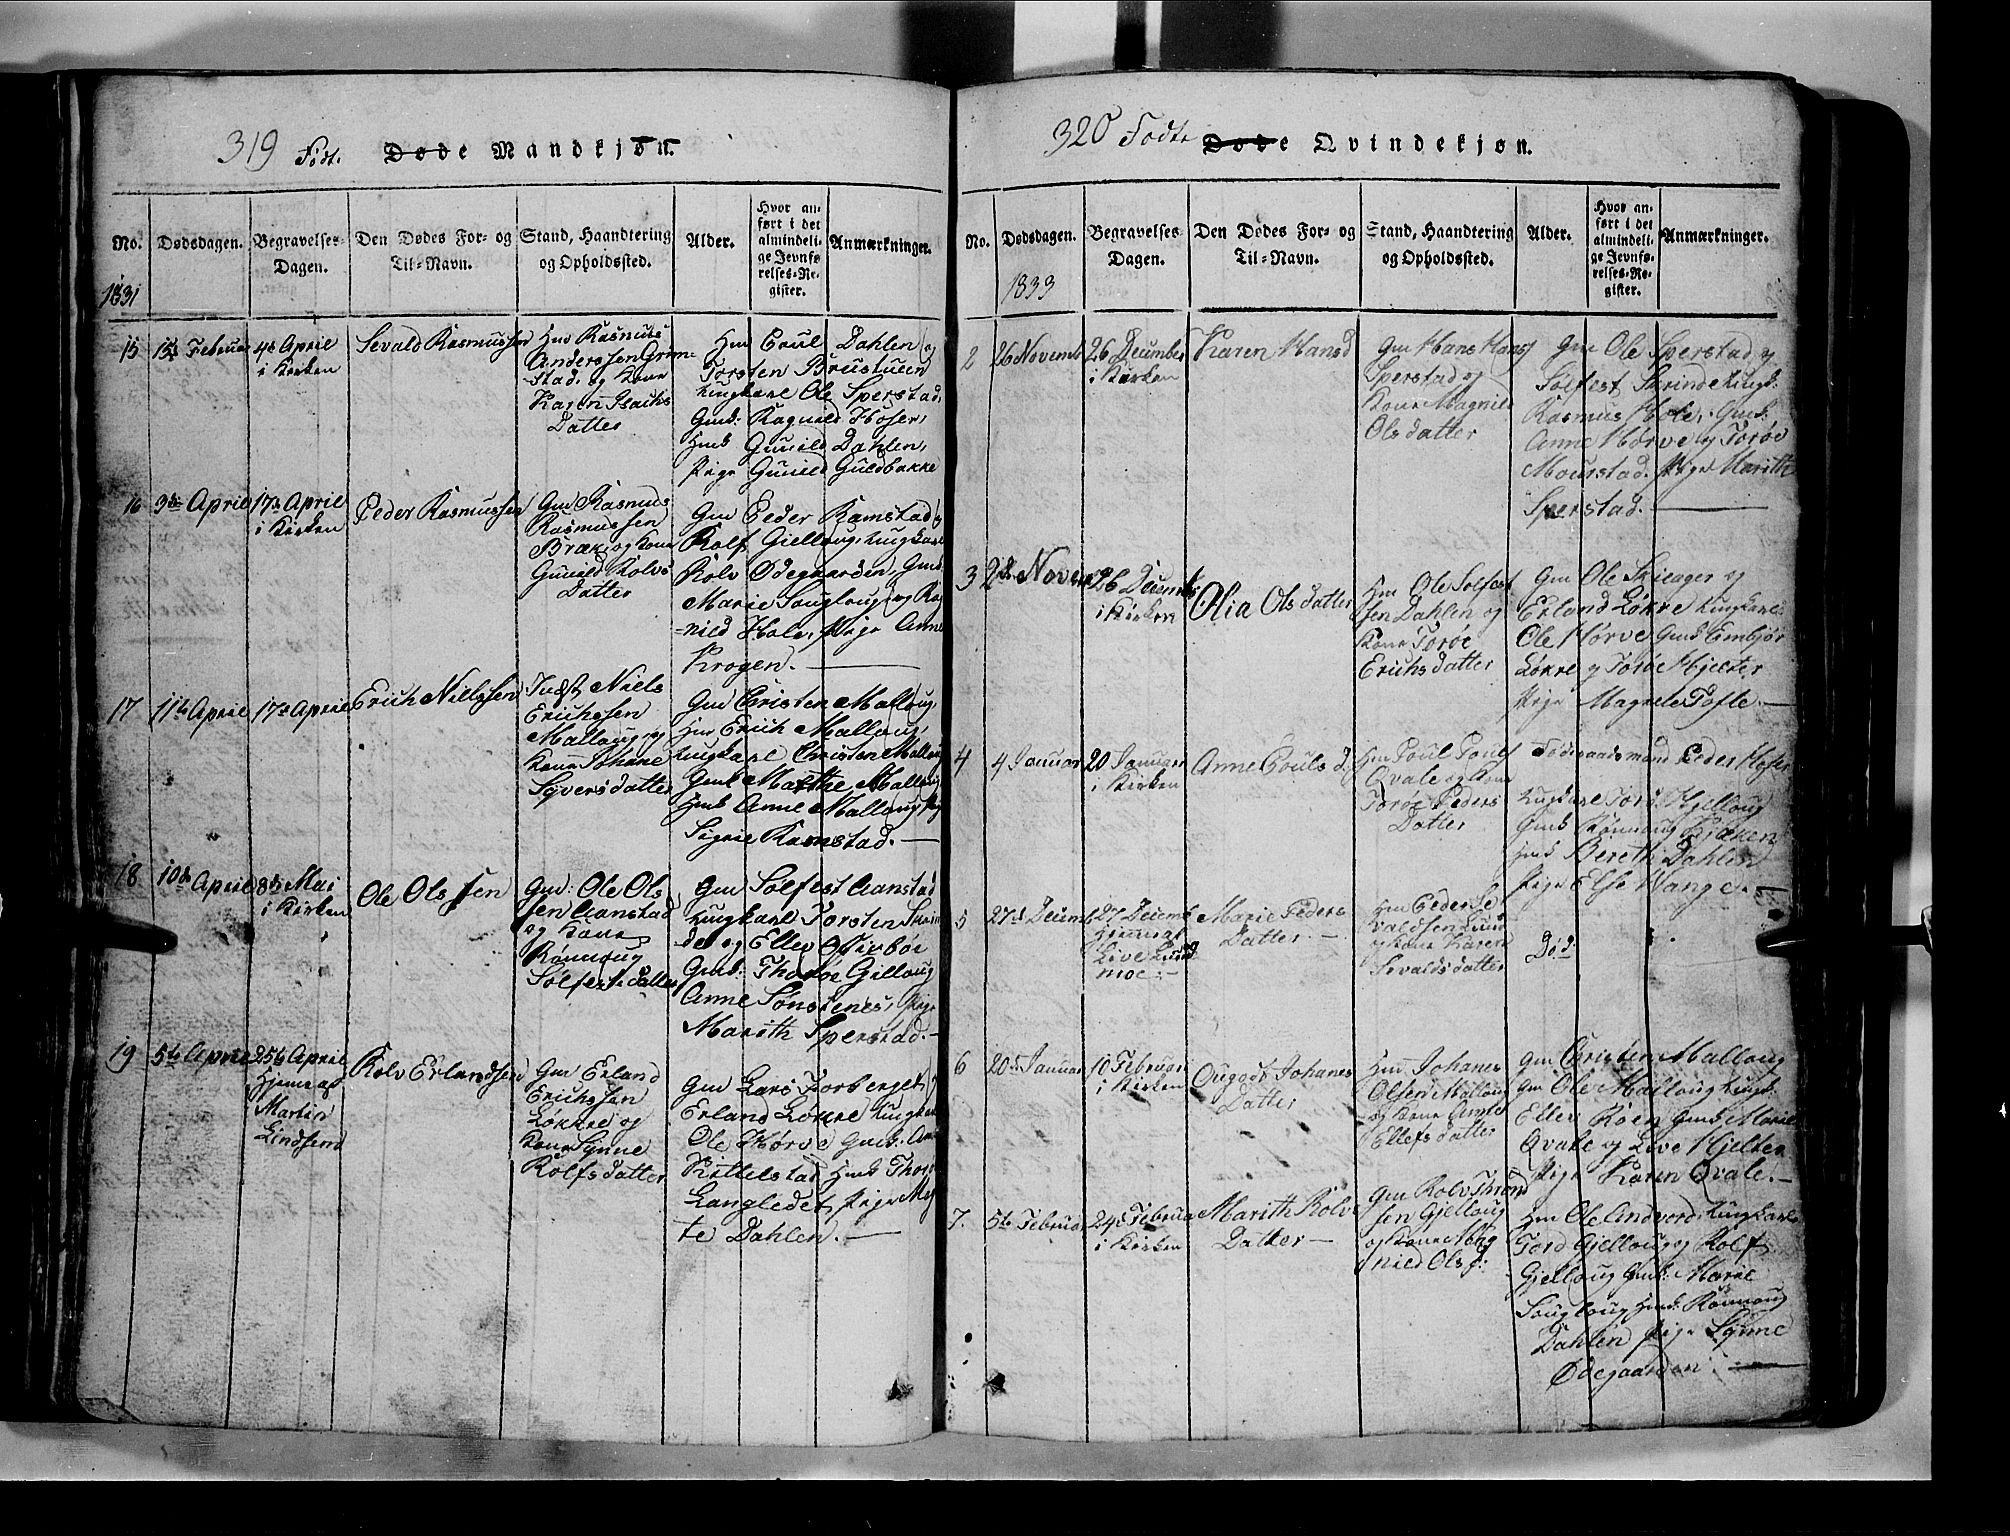 319 Födt. Døde Mandkjøn.
No.
Dødsdagen.
Begravelses-
Dagen.
Den Dødes For- og
Til-Navn.
Stand, Haandtering
og Opholdssted.
Alder.
Hvor an-
ført i det
almindeli-
ge Jevnfø-
relses-Re-
gister.
Anmærkninger.
1831
15
15d Februar
4d April
i Kirken
Sevald Rasmussen
Hmd Rasmus
Anderssen Grim-
stad, og Kone
Karen Isachs
Datter
Hm Poul Dahlen og
Torsten Brustuen
Ungkarl Ole Sperstad,
Gmk: Ragnild Høser,
Hmk Gunild Dahlen,
Pige Gunild Guldbakke
16
3de April
17de April
i Kirken
Peder Rasmussen
Gm Rasmus
Rasmussen
Bræk og Kone
Gunild Rolvs
Datter
Gm Peder Ramstad og
Rolf Gielloug, Ungkarl
Rolv Ødegaarden, Gmk
Marie Sougloug og Rag-
nild Hole, Pige Anne
Krogen.
17
11te April
17de April
Erich Nielssen
Indst Niels
Erichssen
Malloug og
Kone Johane
Syversdatter
Gm Christen Malloug,
Hm Erich Malloug,
Ungkarl Christen Malloug
Gmk Marthe Malloug
Hmk Anne Malloug Pige
Signe Ramstad.
18
10de April
8de Mai
i Kirken
Ole Olssen
Gm: Ole Ols
sen Aanstad
og Kone
Rønnoug
Sølfestsdatter
Gm Sølfest Aanstad
Ungkarl Torsten Skrin
de og Ellev
Gmk: Thorøe Gielloug
Anne Sønstenes, Pige
Marith Sperstad.
19
5te April
25de April
Hjemme af
Martin
Lindsend
Rolv Erlandsen
Gm Erland
Erichssen
Løkre og
Kone Synne
Rolfsdatter
Gm Lars Forberget,
Erland Løkre Ungkarl
Ole Hørve Gmk: Anne
Kittelstad, Hmk Thor
Langledet, Pige
te Dahlen.
320 Födte Døde Qvindekjøn.
No.
Dødsdagen.
Begravelses
Dagen.
Den Dødes For- og
Til-Navn.
Stand, Haandtering
og Opholdssted.
Alder.
Hvor an-
ført i det
almindeli-
ge Jevnfø-
relses-Re-
gister.
Anmærkninger.
1833
2
26 Novemb
26 December
i Kirken
Karen Hansd
Gm Hans Hans
Sperstad og
Kone Magnild
Olsdatter
Gm Ole Sperstad og
Sølfest Skrinde Ungk:
Rasmus Hole, Gmk:
Anne Hørve og Torøe
Mourstad. Pige Marith
Sperstad.
3
2de Novem
26 Decemb
i Kirken
Olia Olsdatter
Hm Ole Solfest
sen Dahlen og
Kone Torøe
Erichsdatter
Gm Ole Skieager og
Erland Løkre Ungkarl
Ole Hørve Gmk Embjør
Løkre og Torøe Hjelter
Pige Magnele Tofte.
4
4 Januar
20 Januar
i Kirken
Anne Pouls d.
Hm Poul Pouls
Qvale og Kone
Torøe Peders
Datter
Fodegaardsmand Peder Høser
Ungkarl Tord Hjelloug
Gmk Rønnoug Kjæken
Hmk Bereth Dahlen
Pige Else Wange.
5
27d Decemb
27 Decemb
Hjemme af
Live Lund
moe.
Marie Peders
Datter
Hm Peder Se
valdsen Lund
og Kone Karen
Sevaldsdatter
Død
6
20d Januar
10 Februar
i Kirken
Ougodt Johanes
Datter
Hm Johanes
Olsen Malloug
og Kone Anne
Ellefsdatter
Gm Christen Malloug
Gm Ole Malloug Ungk:
Ellev Røen Gmk Marie
Qvale og Live Hjelter
Pige Karen Qvale.
7.
5te Februar
24d Februar
i Kirken
Marith Rolvs
Datter
Gm Rolv Thrond
sen Gjelloug
og Kone Mag
nild Ols d:
Hm Ole Andvord, Ungkarl
Tord Gjelloug og Rolf
Gjelloug Gmk: Marie
Sougloug Hmk: Rønnoug
Dahlen Pige Synne
Ødegaarden.